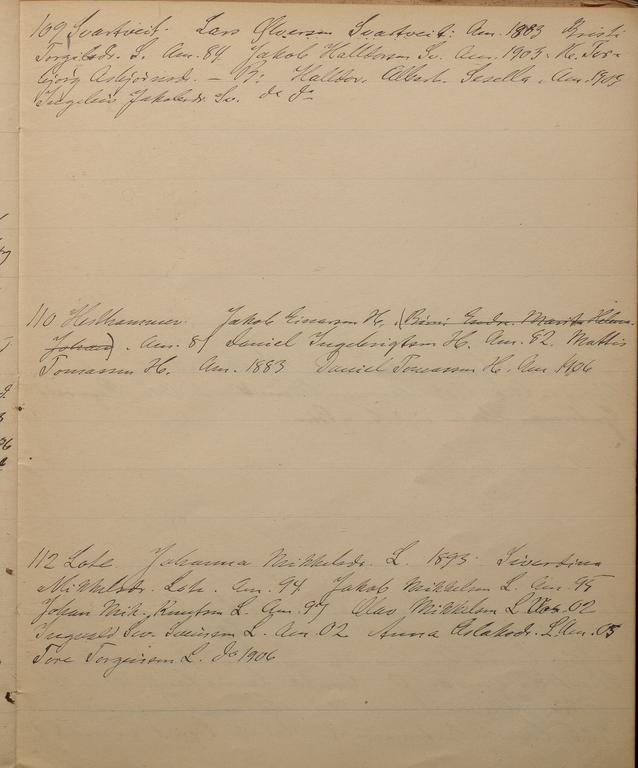 109 Svartveit. Lars Ølversen Svartveit: Am. 1883 Kristi
Torgilsdr. S. Am. 84 Jakob Halldorsen Sv. Am. 1903. K. Tor-
bjørg Asbjørnsd. – B: Halldor, Albert. Sesella. Am. 1903
Ingeleiv Jakobsdr. Sv. do do
110 Hesthammer. Jakob Einarsen H. (Børn: Endre. Marita Helene.
Johan). Am. 81 Daniel Ingebrigtsen H. Am. 82. Mattis
Tomassen H. Am. 1883 Daniel Tomassen H. Am 1906
112 Lote Johanna Mikkelsdr. L. 1893. Sivertine
Mikkelsdr. Lote. Am. 94. Jakob Mikkelsen L. Am. 95
Johan Mik. Knutsen L. Am. 97 Olav Mikkelsen L. 02
Ingvald Sev. Sveinsen L. Am. 02 Anna Aslaksdr. L. Am. 03
Tore Torgeirsen L. do 1906